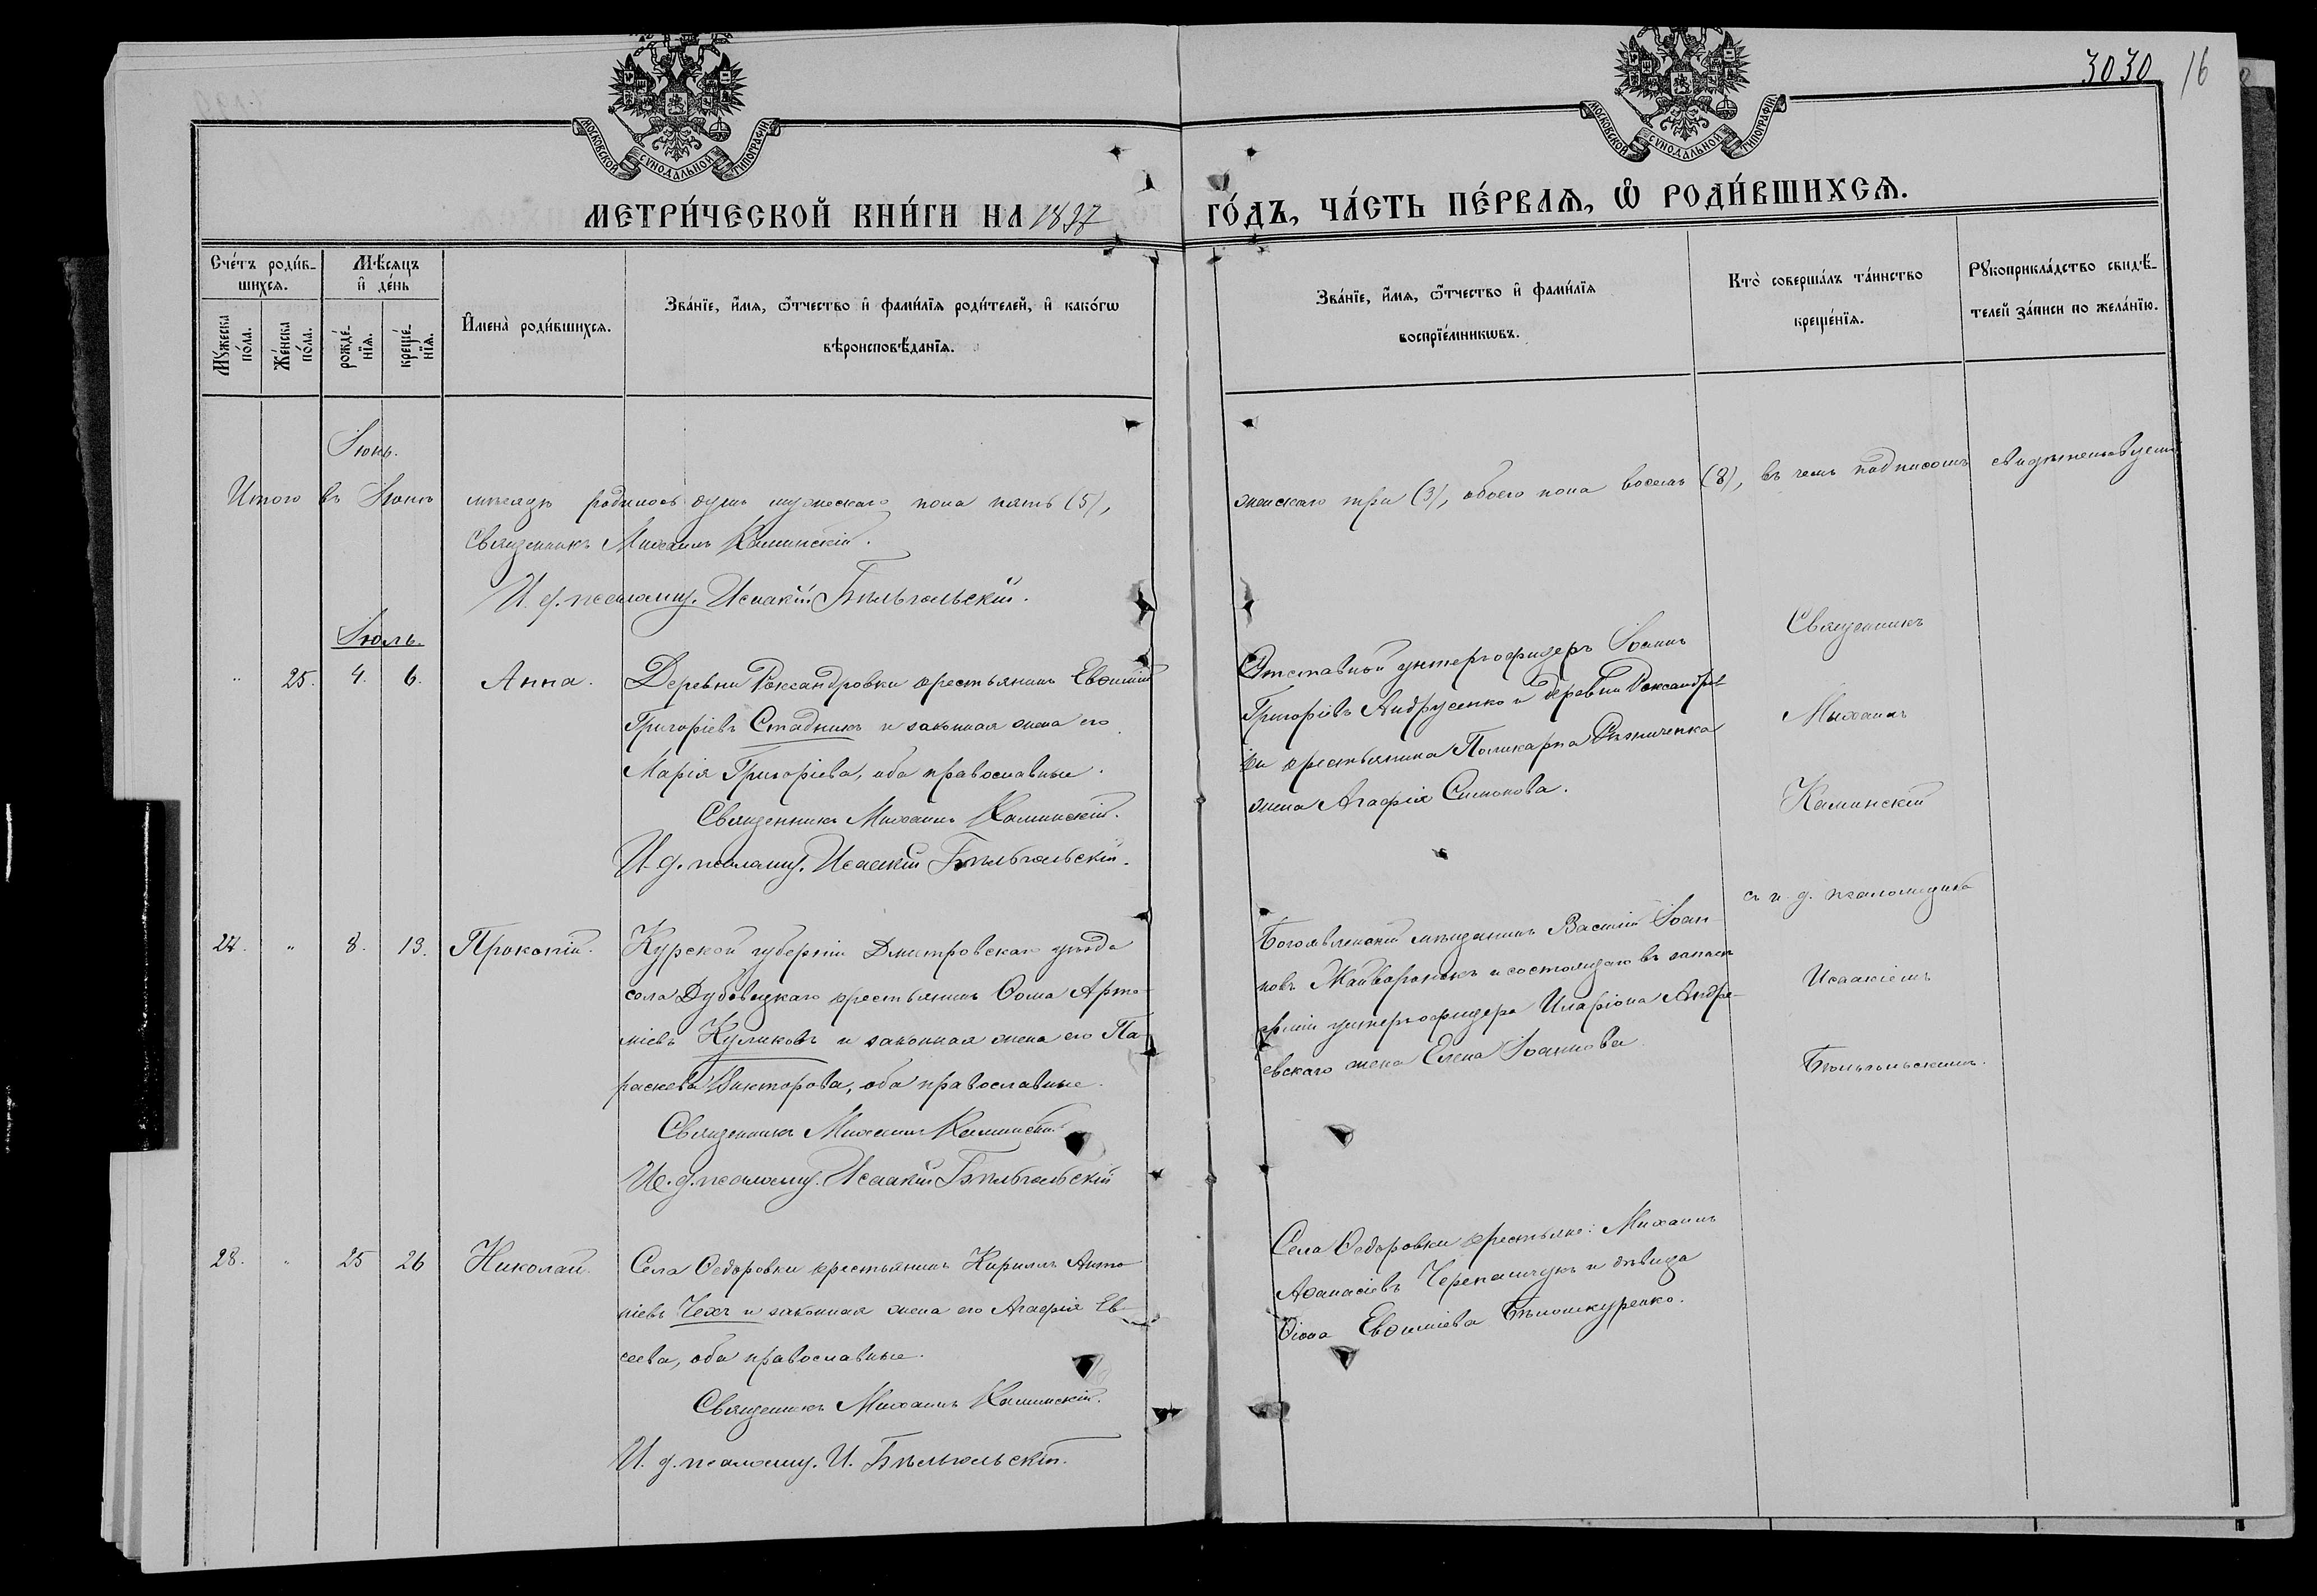 3030 16
МОСКОВСКОЙ СѴНОДАЛЬНОЙ ТИПОГРАФІИ
МОСКОВСКОЙ СѴНОДАЛЬНОЙ ТИПОГРАФІИ
МЕТРИ́ЧЕСКОЙ КНИ́ГИ НА 1897 ГО́ДЪ, ЧА́СТЬ ПЕ́РВАѦ, Ѡ҆ РОДИ́ВШИХСѦ.
Сче́тъ роди́в-
шихсѧ.
Мꙋ́жеска по́ла.
Же́нска по́ла.
Мѣ́сѧцъ и҆ де́нь
рожде́нїѧ.
креще́нїѧ.
И҆мена̀ роди́вшихсѧ.
Зва́нїе, и҆́мѧ, ѻ҆́тчество и҆ фами́лїѧ роди́телей, и҆ како́гѡ
вѣроисповѣ́данїѧ.
Зва́нїе, и҆́мѧ, ѻ҆́тчество и҆ фами́лїѧ
воспрїе́мникѡвъ.
Кто̀ соверша́лъ та́инство
креще́нїѧ.
Рꙋкоприкла́дство свидѣ́-
телей за́писи по жела́нїю.
Іюнь.
Итого въ Іюнѣ мѣсяцѣ родилось душъ мужескаго пола пять (5), женскаго три (3), обоего пола восемь (8), въ чемъ подписомъ свидѣтельствуемъ
Священникъ Михаилъ Каминскій.
И. д. псаломщ. Исаакій Бѣльгольскій.
Іюль.
" 25. 4. 6. Анна.
Деревни Роксандровки крестьянинъ Евѳимій
Григоріевъ Стадникъ и законная жена его
Марія Григоріева, оба православные.
Священникъ Михаилъ Каминскій.
И. д. псаломщ. Исаакій Бѣльгольскій.
Отставной унтеръ-офицеръ Іоаннъ
Григоріевъ Андрусенко и деревни Роксандров-
ки крестьянина Поликарпа Рѣзниченка
жена Агафія Симонова.
Священникъ
Михаилъ
Каминскій
съ и. д. псаломщика
Исаакіемъ
Бѣльгольскимъ.
27. " 8. 13. Прокопій.
Курской губерніи Дмитровскаго уѣзда
села Дубовицкаго крестьянинъ Ѳома Арте-
міевъ Куликовъ и законная жена его Па-
раскева Викторова, оба православные.
Священникъ Михаилъ Каминскій.
И. д. псаломщ. Исаакій Бѣльгольскій
Богоявленскій мѣщанинъ Василій Іоан-
новъ Майборонюкъ и состоящаго въ запасѣ
арміи унтеръ-офицера Иларіона Андре-
евскаго жена Елена Іоаннова
28. " 25 26 Николай.
Села Ѳедоровки крестьянинъ Кириллъ Анто-
ніевъ Чехъ и законная жена его Агафія Ев-
сеева, оба православные.
Священникъ Михаилъ Каминскій.
И. д. псаломщ. И. Бѣльгольскій.
Села Ѳедоровки крестьяне: Михаилъ
Аѳанасіевъ Черепащукъ и дѣвица
Евѳиміева Бѣлошкуренко.